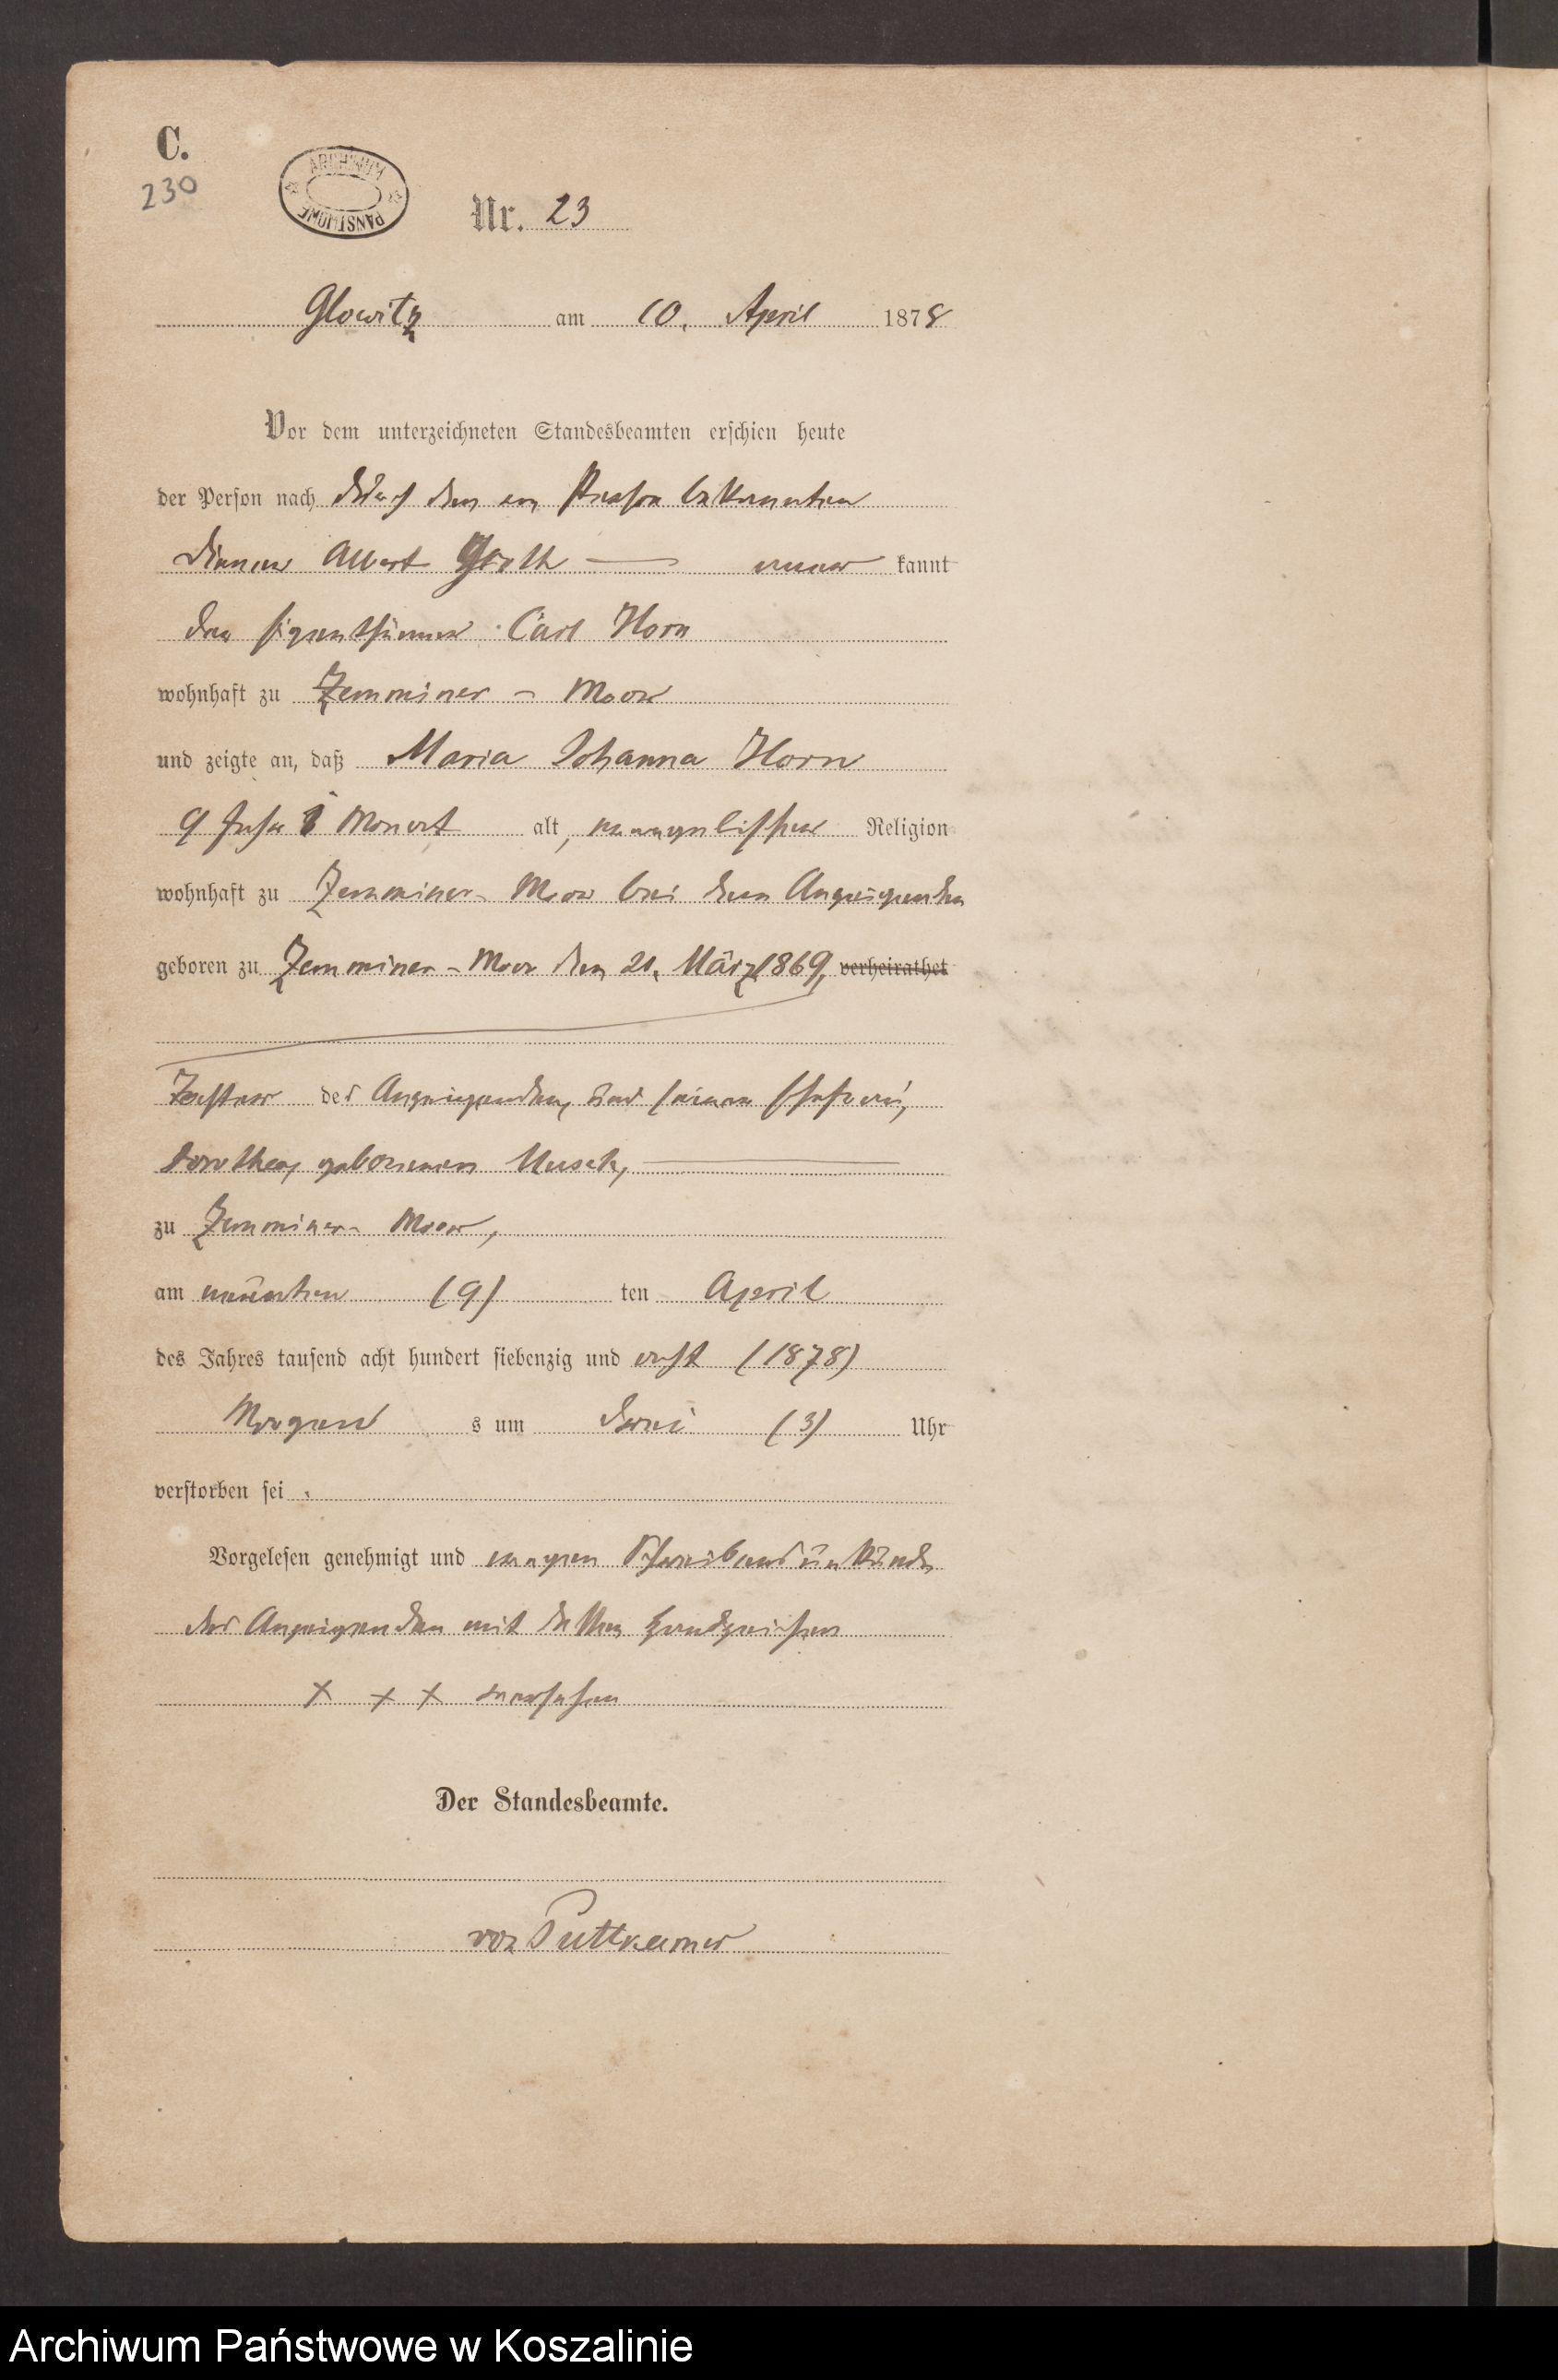 C.
230
ARCHIWUM PAŃSTWOWE
Nr. 23
Glowitz am 10. April 1878
Vor dem unterzeichneten Standesbeamten erschien heute
der Person nach durch den von Person bekannten
Diener Albert Groth — aner kannt
der Eigenthümer Carl Horn
wohnhaft zu Zemminer - Moor
und zeigte an, daß Maria Johanna Horn
9 Jahr 1 Monat alt, evangelischer Religion
wohnhaft zu Zemminer- Moor bei dem Anzeigenden
geboren zu Zemminer - Moor den 21. März 1869, verheirathet
Tochter des Anzeigenden, und seiner Ehefrau,
Dorothea, geborenen Musch, —
zu Zemminer- Moor,
am neunten (9) ten April
des Jahres tausend acht hundert siebenzig und acht (1878)
Morgen s um drei (3) Uhr
verstorben sei .
Vorgelesen genehmigt und wegen Schreibensunkunde
des Anzeigenden mit dessen Handzeichen
+ + + versehen
Der Standesbeamte.
von Puttkamer
Archiwum Państwowe w Koszalinie